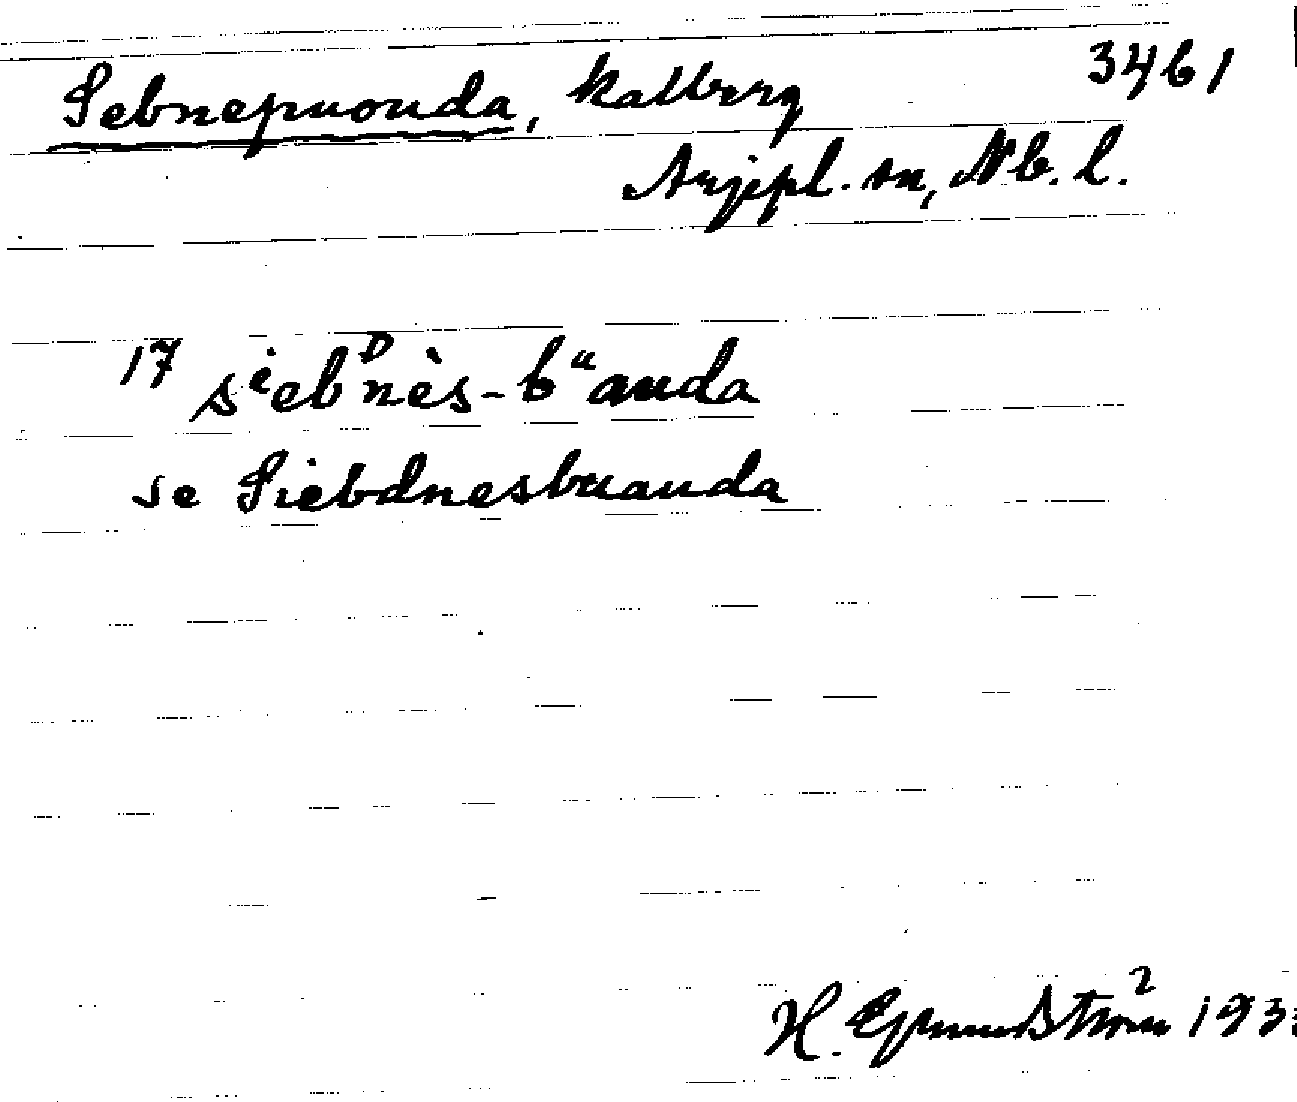 Sebnepuouda, kalberg 3461
Arjepl. sn, Nb. l.
17 sⁱebᴰnès-bᵘauda
se Siebdnesbuauda
H. 193